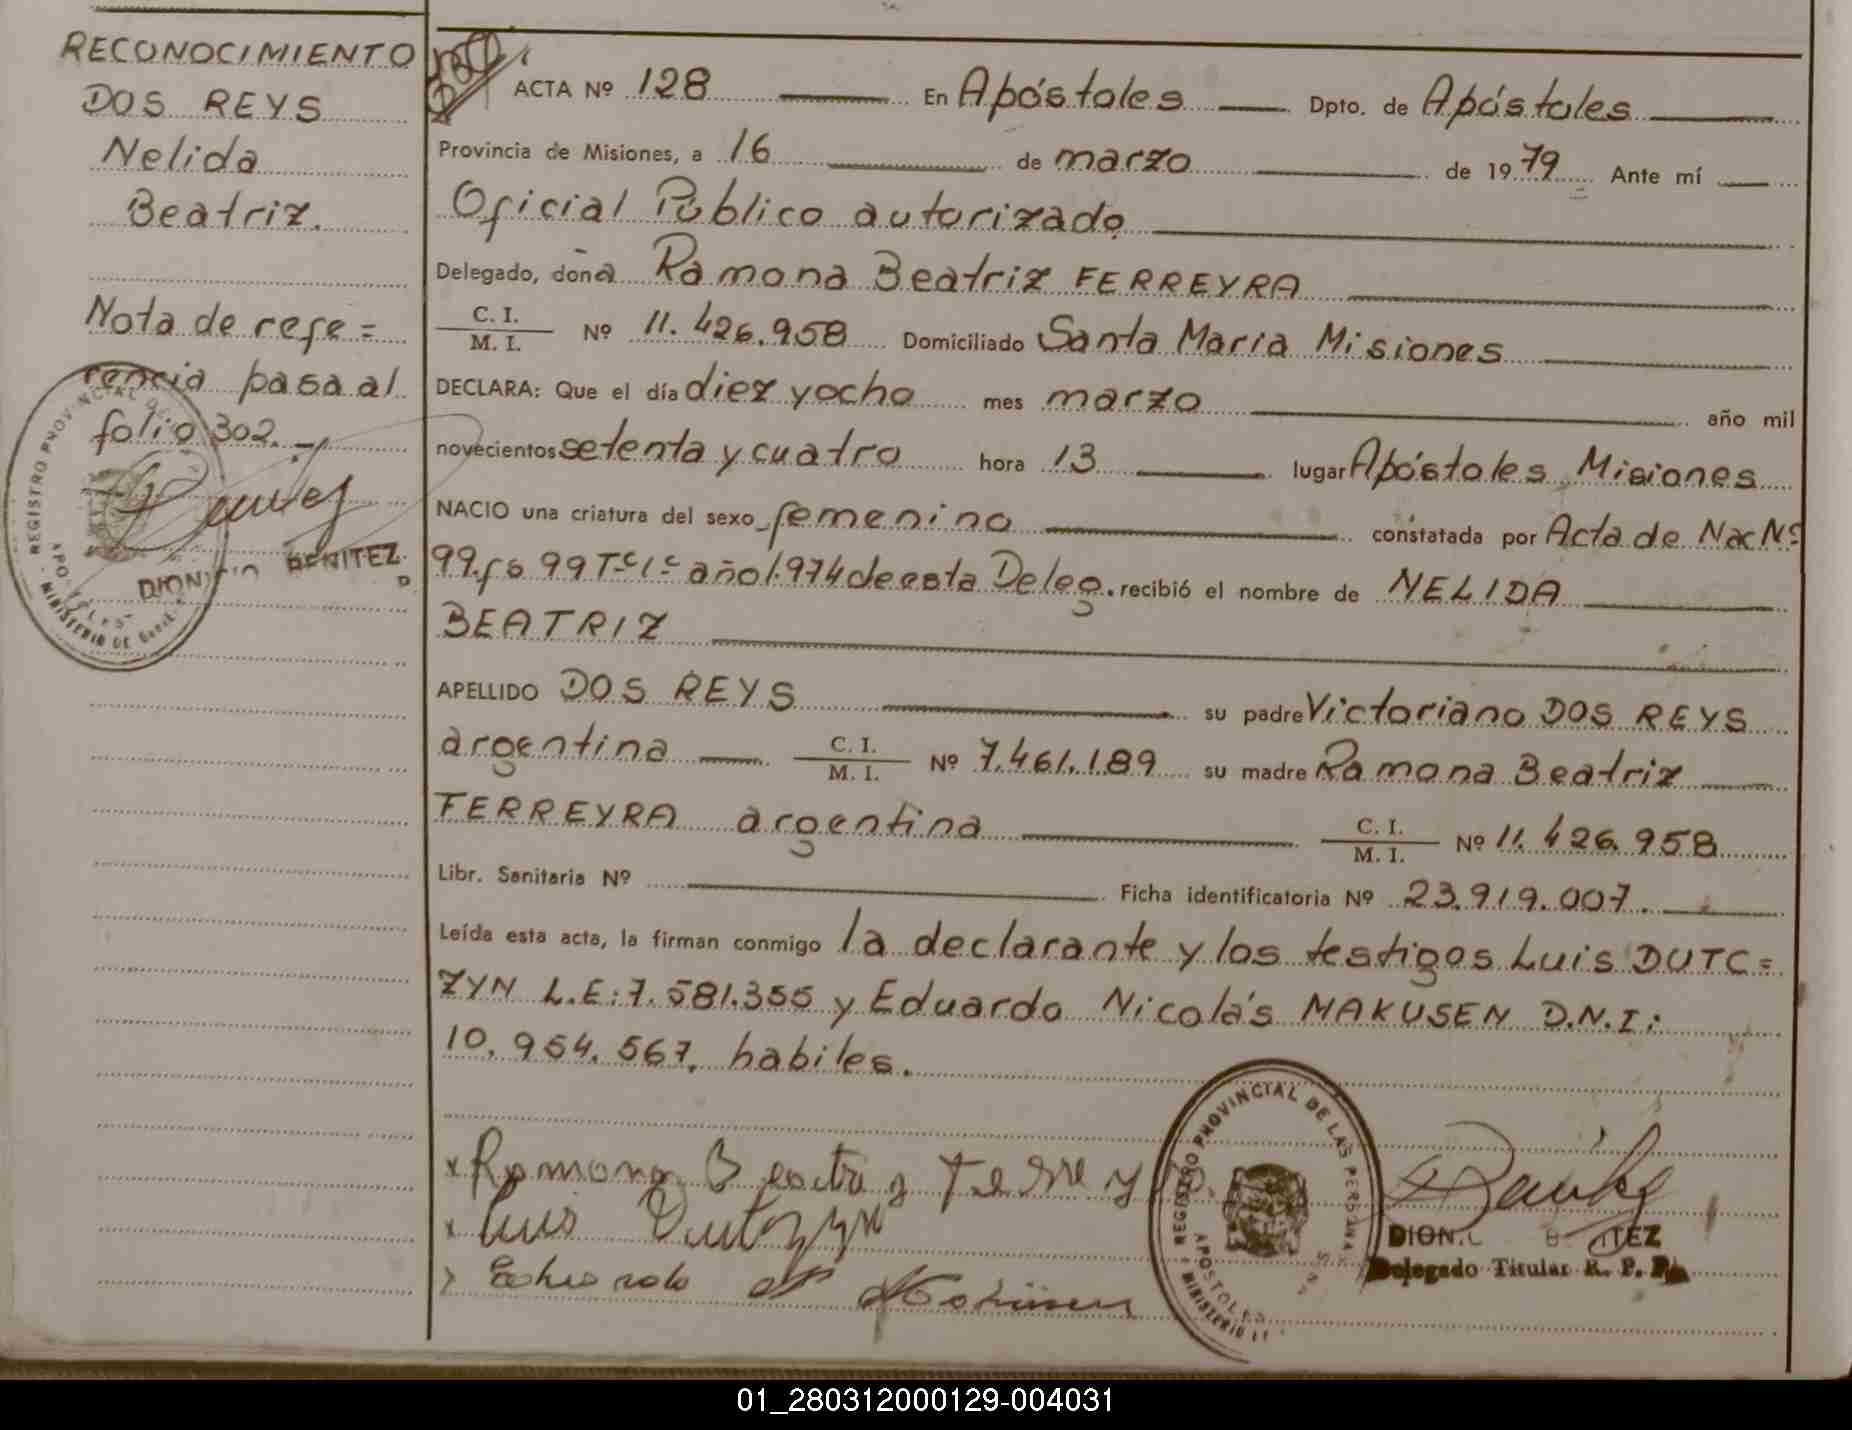 RECONOCIMIENTO
DOS REYS
Nelida
Beatriz.
Nota de refe=
rencia pasa al
folio 302.
DIONISIO BENITEZ
ACTA Nº 128 En Apóstoles Dpto. de Apóstoles
Provincia de Misiones, a 16 de marzo de 1979 Ante mí
Oficial Público autorizado
Delegado, doña Ramona Beatriz FERREYRA
C. I.
M. I. Nº 11.426.958 Domiciliado Santa Maria Misiones
DECLARA: Que el día diez yocho mes marzo año mil
novecientos setenta y cuatro hora 13 lugar Apóstoles Misiones
NACIO una criatura del sexo femenino constatada por Acta de Nac Nº
99 fº 99 Tº 1º año 1.974 de esta Deleg. recibió el nombre de NELIDA
BEATRIZ
APELLIDO DOS REYS su padre Victoriano DOS REYS
argentina C. I.
M. I. Nº 7.461.189 su madre Ramona Beatriz
FERREYRA argentina C. I.
M. I. Nº 11.426.958
Libr. Sanitaria Nº Ficha identificatoria Nº 23.919.007.
Leída esta acta, la firman conmigo la declarante y los testigos Luis DUTC=
ZYN L.E:7.581.355 y Eduardo Nicolás MAKUSEN D.N.I:
10.954.567. habiles.
x Ramona Beatriz Ferreyra
x Luis Dutczyn
REGISTRO PROVINCIAL DE LAS PERSONAS
APOSTOLES
Delegado Titular R. P. P.
01_280312000129-004031